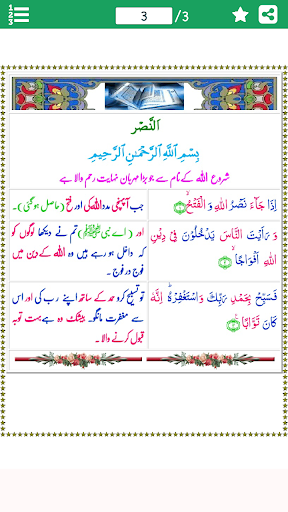 1
2
3
3 /3
اَلنَّصْر
بِسْمِ ٱللَّهِ ٱلرَّحْمَٰنِ ٱلرَّحِيمِ
شروع اللہ کے نام سے جو بڑا مہربان نہایت رحم والا ہے
اِذَا جَآءَ نَصْرُ اللّٰهِ وَ الْفَتْحُ
جب آپہنچی مدد اللہ کی اور فتح (حاصل ہوگئی)۔
وَ رَاَیْتَ النَّاسَ یَدْخُلُوْنَ فِیْ دِیْنِ
اللّٰهِ اَفْوَاجًا
اور (اے نبیﷺ) تم نے دیکھا لوگوں کو
کہ داخل ہو رہے ہیں وہ اللہ کے دین میں
فوج در فوج۔
فَسَبِّحْ بِحَمْدِ رَبِّكَ وَ اسْتَغْفِرْهُ اِنَّهٗ
كَانَ تَوَّابًا
تو تسبیح کرو حمد کے ساتھ اپنے رب کی اور اس
سے مغفرت مانگو۔ بیشک وہ ہے بہت توبہ
قبول کرنے والا۔